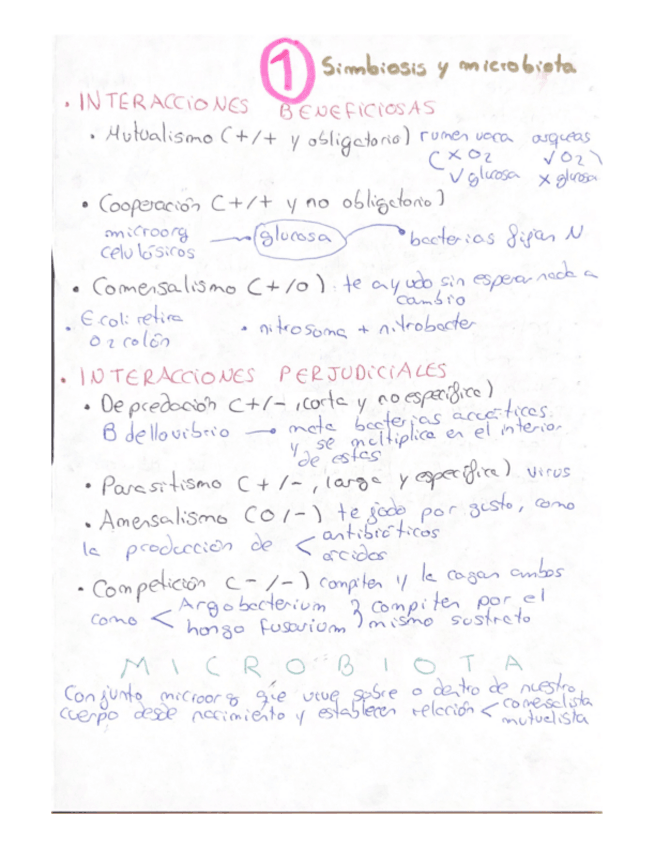 1 Simbiosis y microbiota
· INTERACCIONES BENEFICIOSAS
· Mutualismo (+/+ y obligatorio) rumen vaca arqueas
(X O2 √ O2)
√ glucosa X glucosa
· Cooperación (+/+ y no obligatorio)
microorg celulósicos — glucosa — bacterias fijan N
· Comensalismo (+/0) te ayudo sin esperar nada a cambio
· E.coli retira O2 colón · nitrosoma + nitrobacter
· INTERACCIONES PERJUDICIALES
· Depredación (+/-, corta y no específica)
Bdellovibrio → mata bacterias acuáticas
y se multiplica en el interior
de estas
· Parasitismo (+/-, larga y específica) virus
· Amensalismo (0/-) te jodo por gusto, como
la producción de < antibióticos
ácidos
· Competición (-/-) compiten y la cagan ambos
como < Argobacterium } compiten por el
hongo fusarium } mismo sustrato
MICROBIOTA
Conjunto microorg que vive sobre o dentro de nuestro
cuerpo desde nacimiento y establecen relación < comensalista
mutualista